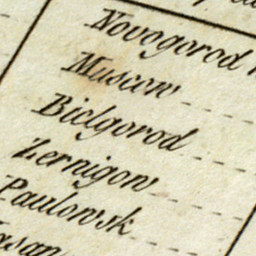 Novogorod
Muscow
Bielgorod
Zernigow
Paulowsk